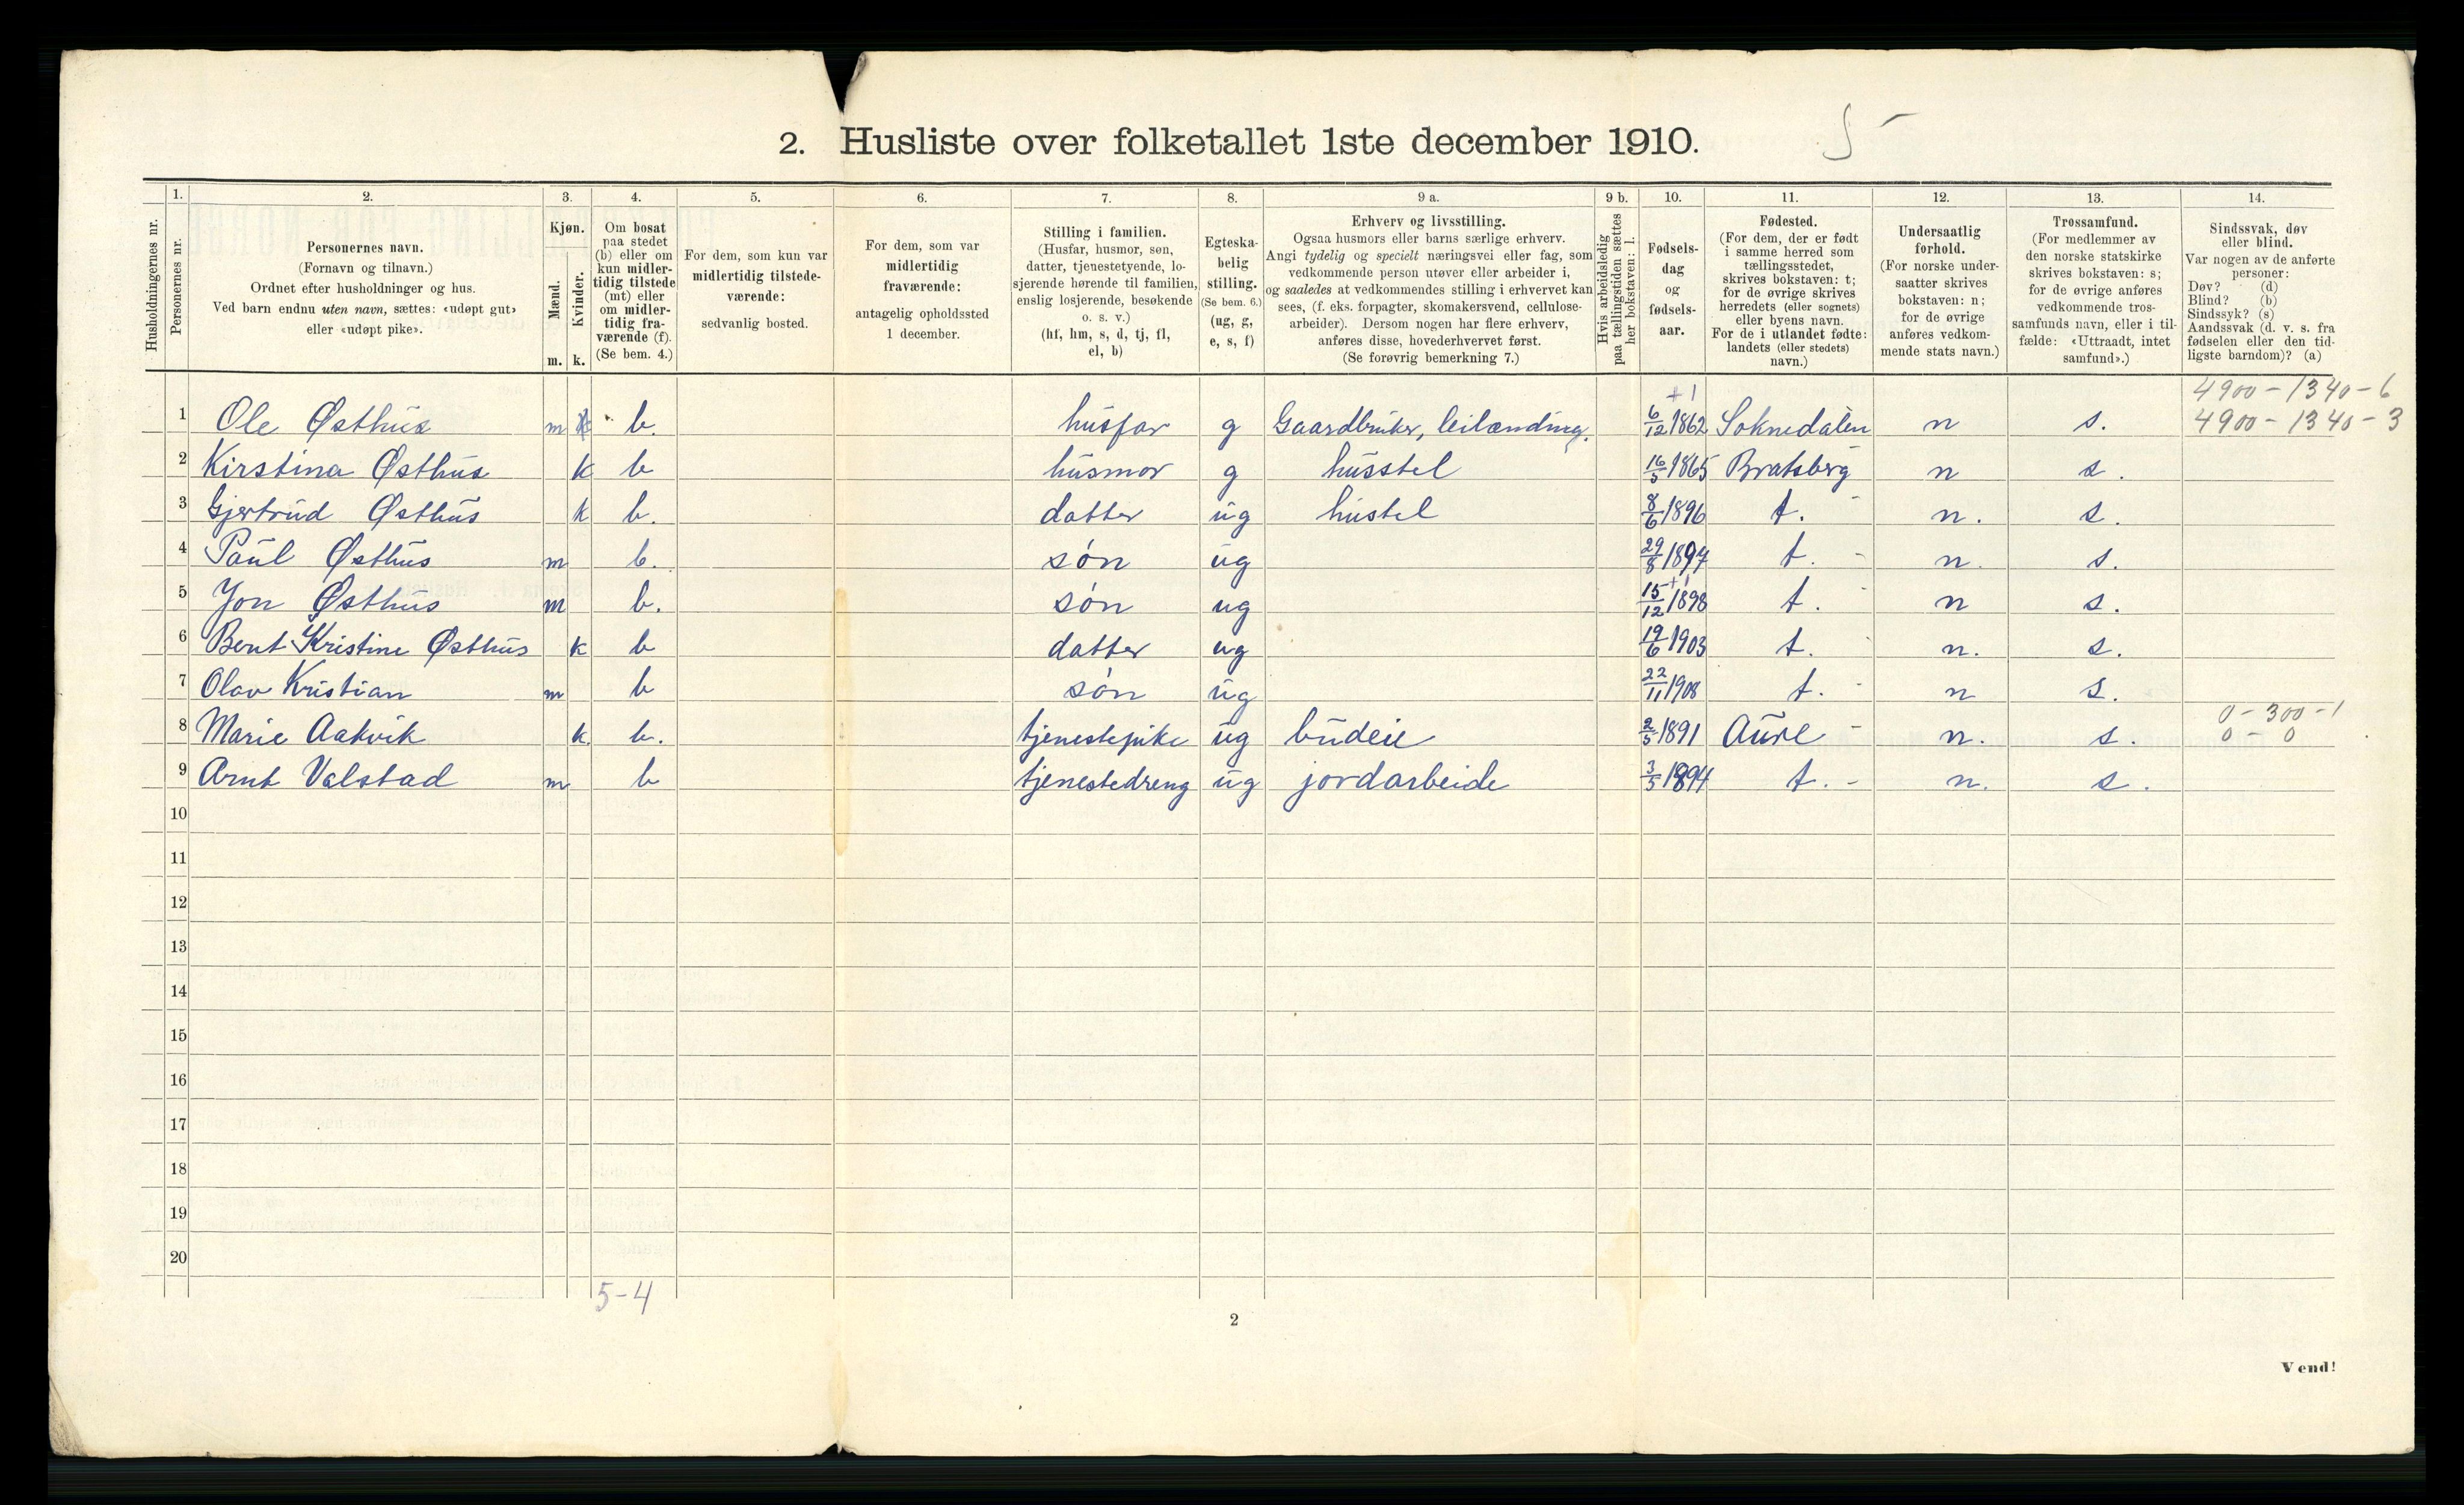 2. Husliste over folketallet 1ste december 1910. 5
1. 2. 3. 4. 5. 6. 7. 8. 9 a. 9 b. 10. 11. 12. 13. 14.
Husholdningernes nr.
Personernes nr.
Personernes navn.
(Fornavn og tilnavn.)
Ordnet efter husholdninger og hus.
Ved barn endnu uten navn, sættes: «udøpt gut»
eller «udøpt pike».
Kjøn.
Mænd.
m.
Kvinder.
k.
Om bosat
paa stedet
(b) eller om
kun midler-
tidig tilstede
(mt) eller
om midler-
tidig fra-
værende (f).
(Se bem. 4.)
For dem, som kun var
midlertidig tilstede-
værende:
sedvanlig bosted.
For dem, som var
midlertidig
fraværende:
antagelig opholdssted
1 december.
Stilling i familien.
(Husfar, husmor, søn,
datter, tjenestetyende, lo-
sjerende hørende til familien,
enslig losjerende, besøkende
o. s. v.)
(hf, hm, s, d, tj, fl,
el, b)
Egteska-
belig
stilling.
(Se bem. 6.)
(ug, g,
e, s, f)
Erhverv og livsstilling.
Ogsaa husmors eller barns særlige erhverv.
Angi tydelig og specielt næringsvei eller fag, som
vedkommende person utøver eller arbeider i,
og saaledes at vedkommendes stilling i erhvervet kan
sees, (f. eks. forpagter, skomakersvend, cellulose-
arbeider). Dersom nogen har flere erhverv,
anføres disse, hovederhvervet først.
(Se forøvrig bemerkning 7.)
Hvis arbeidsledig
paa tællingstiden sættes
her bokstaven: l.
Fødsels-
dag
og
fødsels-
aar.
Fødested.
(For dem, der er født
i samme herred som
tællingsstedet,
skrives bokstaven: t;
for de øvrige skrives
herredets (eller sognets)
eller byens navn.
For de i utlandet fødte:
landets (eller stedets)
navn.)
Undersaatlig
forhold.
(For norske under-
saatter skrives
bokstaven: n;
for de øvrige
anføres vedkom-
mende stats navn.)
Trossamfund.
(For medlemmer av
den norske statskirke
skrives bokstaven: s;
for de øvrige anføres
vedkommende tros-
samfunds navn, eller i til-
fælde: «Uttraadt, intet
samfund».)
Sindssvak, døv
eller blind.
Var nogen av de anførte
personer:
Døv? (d)
Blind? (b)
Sindssyk? (s)
Aandssvak (d. v. s. fra
fødselen eller den tid-
ligste barndom)? (a)
+1 4900-1340-6
1 Ole Østhus m b. husfar g Gaardbruker, leilænding. 6/12 1862 Soknedalen n s. 4900-1340-3
2 Kirstina Østhus k b husmor g husstel 16/5 1865 Bratsberg n s.
3 Gjertrud Østhus k b. datter ug hustel 8/6 1896 t. n. s.
4 Paul Østhus m b. søn ug 29/8 1897 t. - n. s.
+1
5 Jon Østhus m b. søn ug 15/12 1898 t. - n s.
6 Bent Kristine Østhus k b datter ug 19/6 1903 t. - n. s.
7 Olav Kristian m b søn ug 22/11 1908 t. - n s.
0-300-1
8 Marie Aakvik k. b. tjenestepike ug budeie 2/5 1891 Aure - n. s. 0-0
9 Arnt Valstad m b tjenestedreng ug jordarbeide 3/5 1894 t. - n. s.
10
11
12
13
14
15
16
17
18
19
20
5-4
2
Vend!